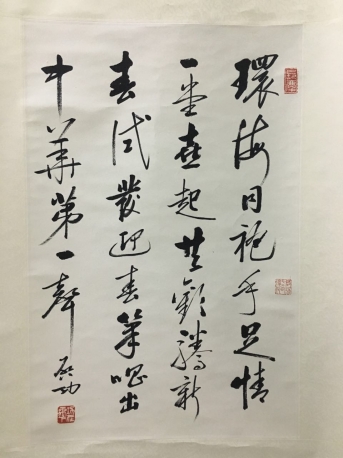 環海同袍手足情
一堂喜起共歡騰新
春試發迎春筆唱出
中華第一聲 启功